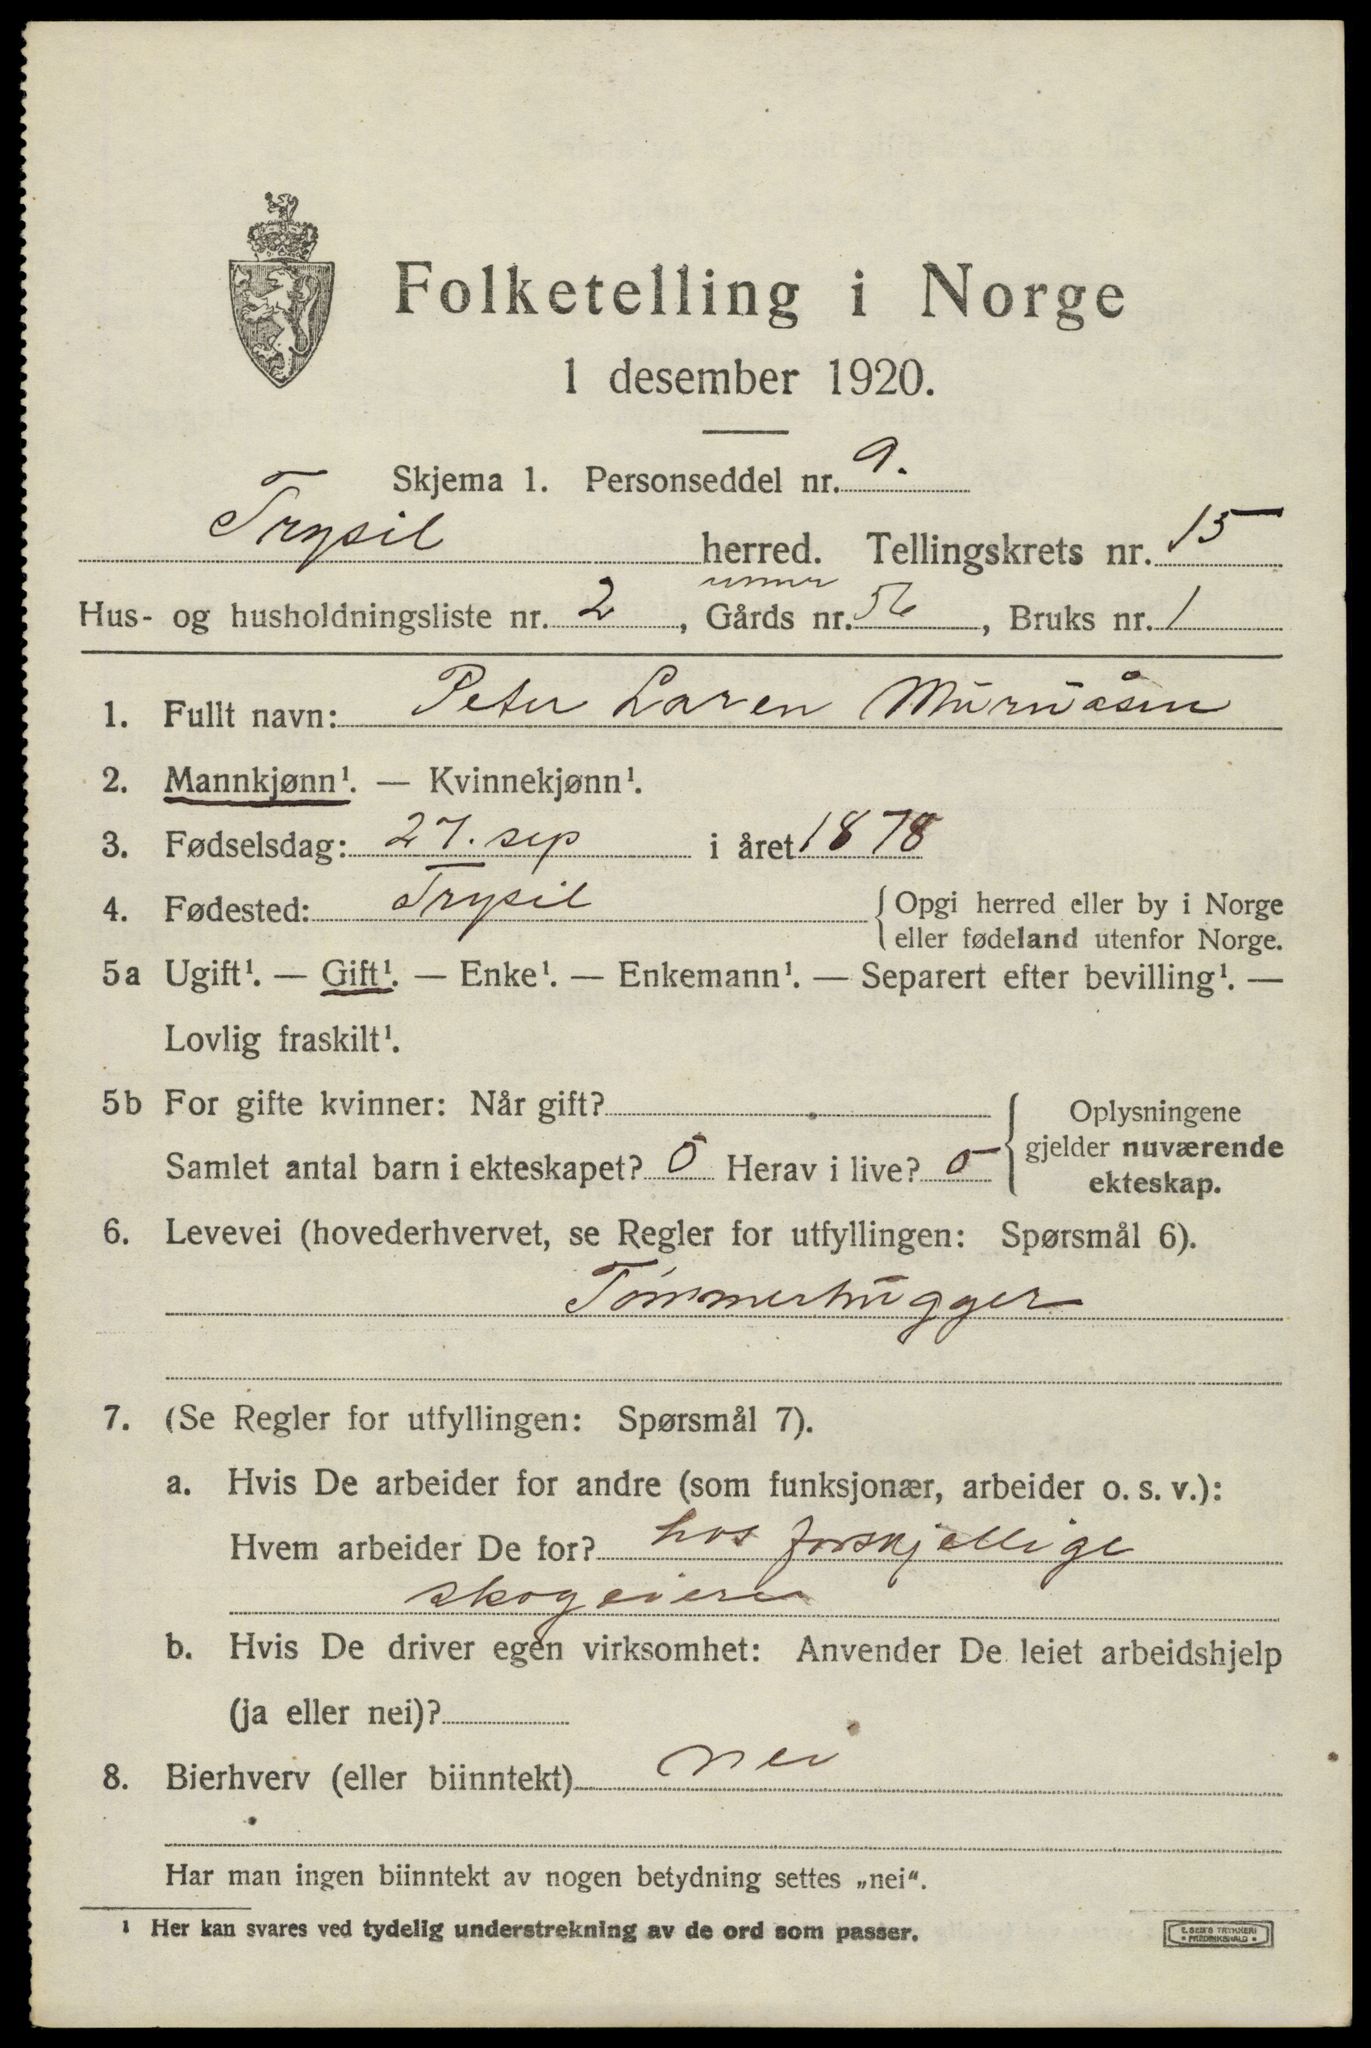 Folketelling i Norge
1 desember 1920.
Skjema 1. Personseddel nr. 9.
Trysil herred. Tellingskrets nr. 15
under
Hus- og husholdningsliste nr. 2, Gårds nr. 56, Bruks nr. 1
1. Fullt navn: Peter Laren Murūåsen
2. Mannkjønn¹. — Kvinnekjønn¹.
3. Fødselsdag: 27. sep i året 1878
4. Fødested: Trysil { Opgi herred eller by i Norge
eller fødeland utenfor Norge.
5a Ugift¹. — Gift¹. — Enke¹. — Enkemann¹. — Separert efter bevilling¹. —
Lovlig fraskilt¹.
5b For gifte kvinner: Når gift? { Oplysningene
gjelder nuværende
ekteskap.
Samlet antal barn i ekteskapet? 5 Herav i live? 5
6. Levevei (hovederhvervet, se Regler for utfyllingen: Spørsmål 6).
Tømmerhugger
7. (Se Regler for utfyllingen: Spørsmål 7).
a. Hvis De arbeider for andre (som funksjonær, arbeider o. s. v.):
Hvem arbeider De for? hos forskjellige
skogeiere
b. Hvis De driver egen virksomhet: Anvender De leiet arbeidshjelp
(ja eller nei)?
8. Bierhverv (eller biinntekt) nei
Har man ingen biinntekt av nogen betydning settes „nei“.
¹ Her kan svares ved tydelig understrekning av de ord som passer.
E. SEM'S TRYKKERI
FREDRIKSHALD